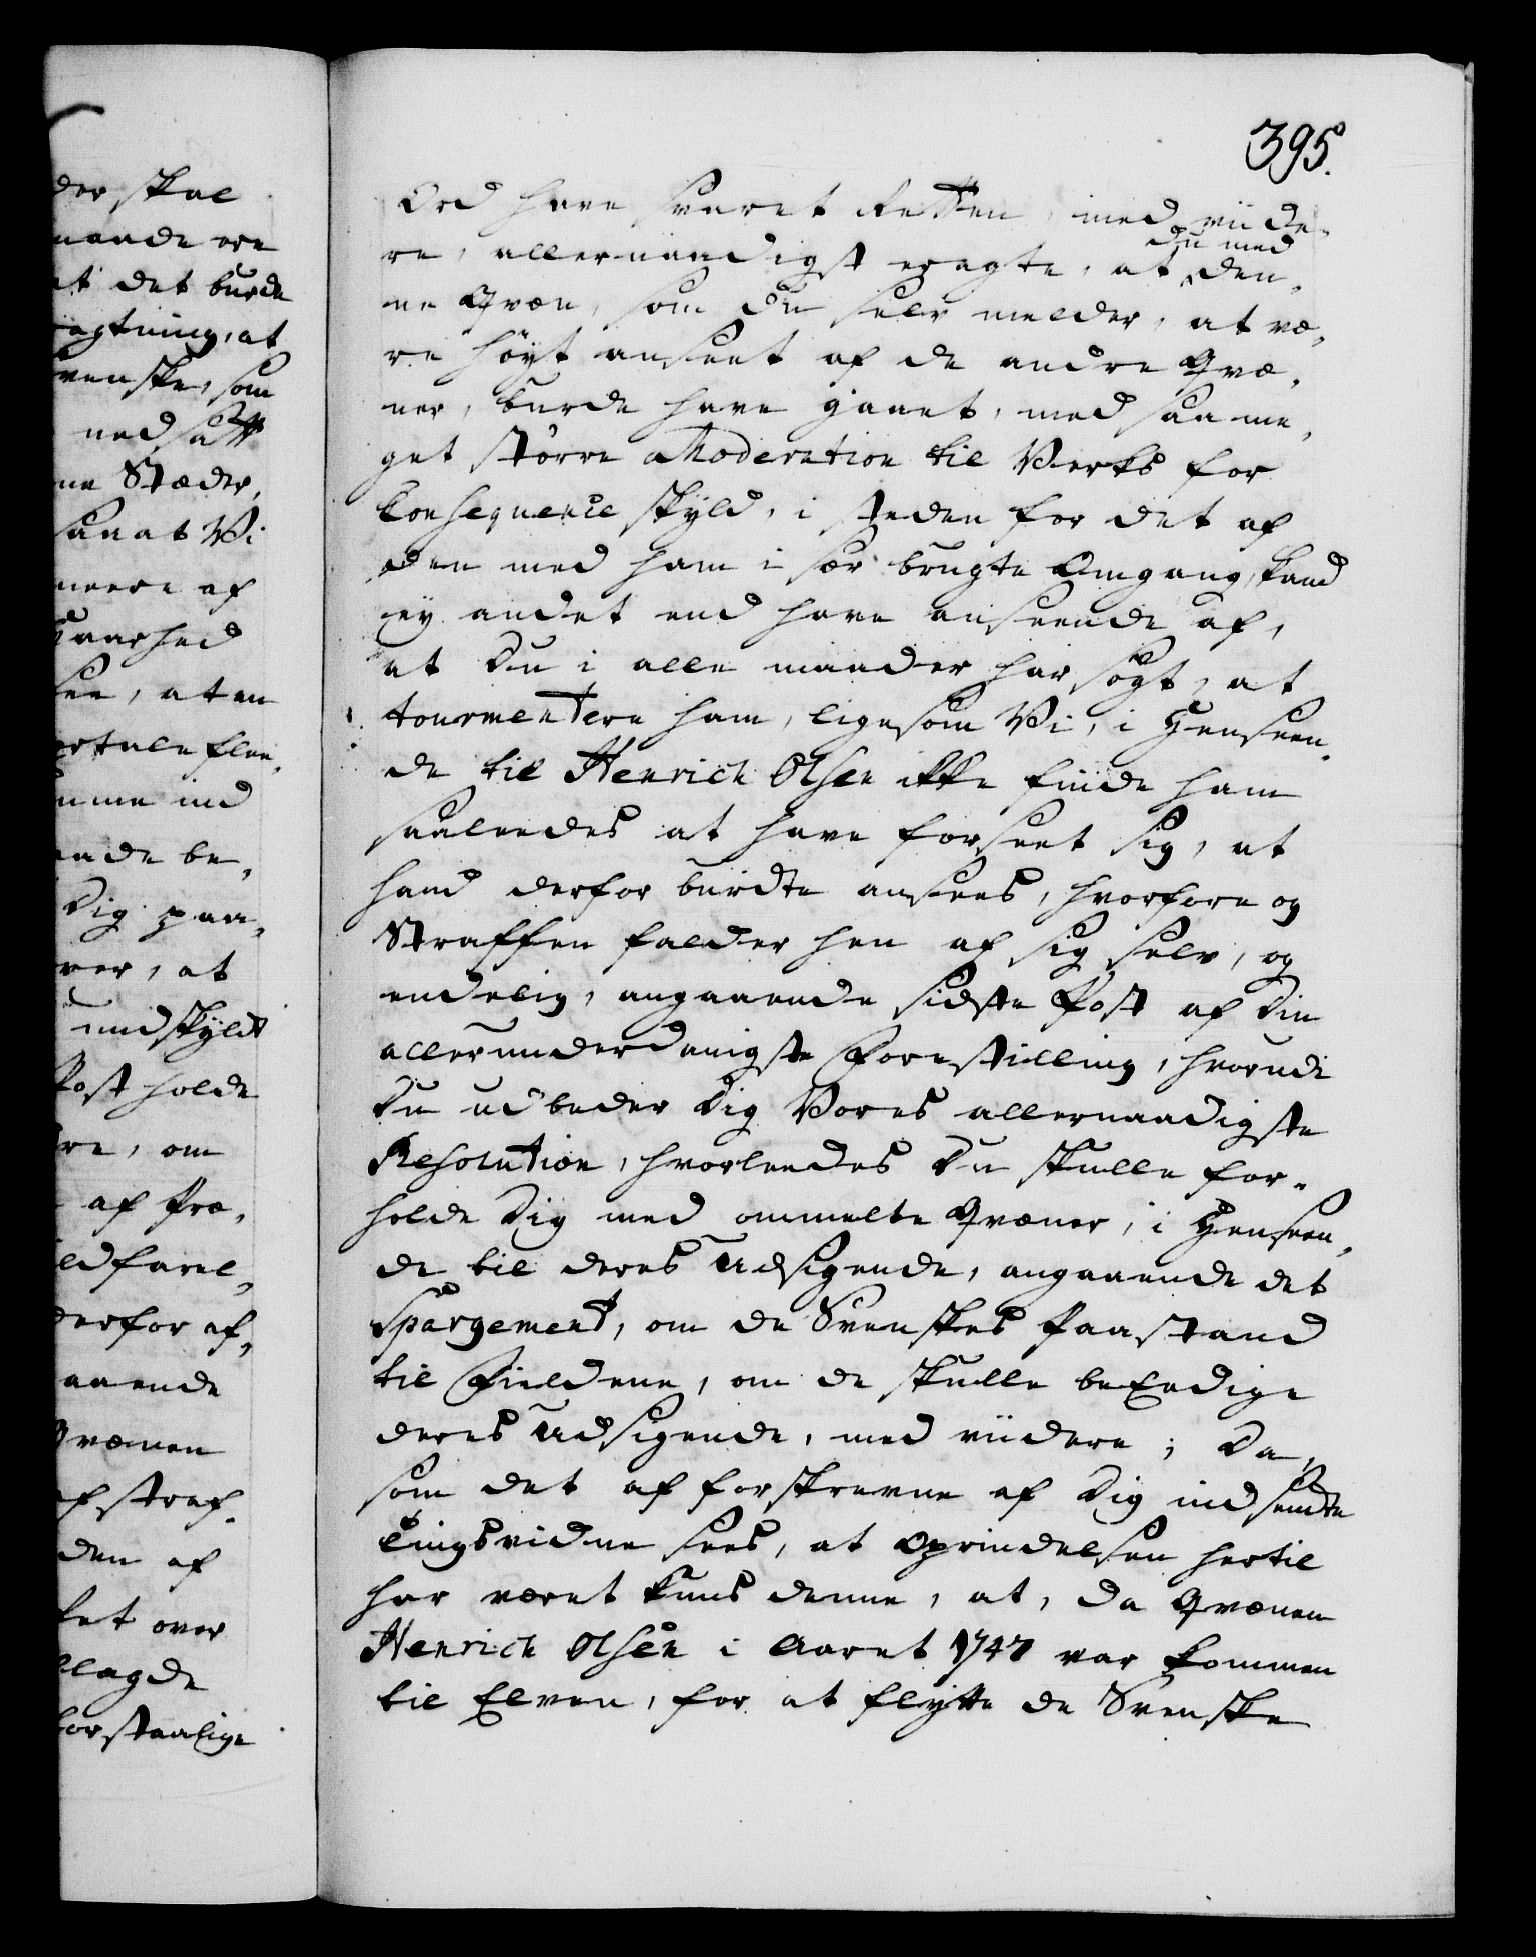 395.
Ord have svaret Retten, med viide-
re, allernaadigst eragte, at du med den-
ne Qvæn, som Du selv melder, at væ-
re høyt anseet af de andre Qvæ-
ner, burde have gaaet, med saa me-
get større Moderation til Verks for
Consequence skyld, i steden for det af
den med ham i sær brugte Omgang, kand
ey andet end have anseende af,
at Du i alle maader har søgt, at
tourmentere ham, ligesom Vi, i Henseen-
de til Henrich Olsen ikke finde ham
saaledes at have forseet sig, at
hand derfor burdte ansees, hvorfore og
Straffen falder hen af sig selv, og
endelig, angaaende sidste Post af Din
allerunderdanigste Forestilling, hvorudi
Du udbeder Dig Vores allernaadigste
Resolution, hvorleedes Du skulle for-
holde Dig med ommelte Qvæner, i Henseen-
de til deres Udsigende, angaaende det
Spargement, om de Svenskes Paastand
til Fieldene, om de skulle beEedige
deres Udsigende, med viidere; Da,
som det af forskrevne af Dig indsendte
tingsvidne sees, at Oprindelsen hertil
har været kuns denne, at, da Qvænen
Henrich Olsen i Aaret 1747 var kommen
til Elven, for at flytte de Svenske
der skal
maade ere
at det burde
agtning, at
venske, som
nedsatt
ne Stæder,
saa at Vi
meere af
aarhed
see, at en
ortale flee,
mme ind
aade be,
Dig paa,
ver, at
undskyldt
Post holde
re, om
af Præ,
ldfarel,
derfor af,
aaende
Qvænen
afstraf,
den af
ket over
lagde
forstaalige